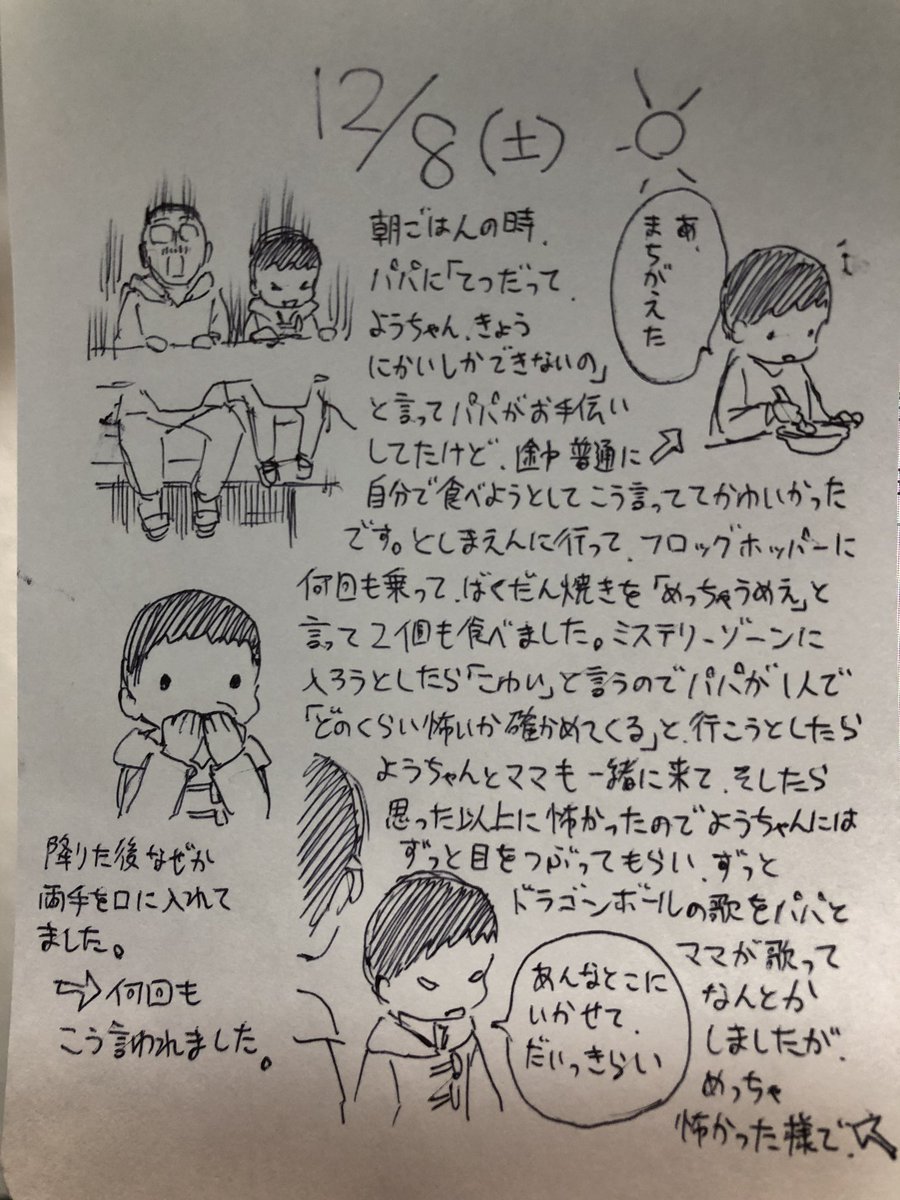 12/8(土)
朝ごはんの時、
パパに「てつだって、
ようちゃん、きょう
にかいしかできないの」
と言ってパパがお手伝い
してたけど、途中普通に
あ、
まちがえた
自分で食べようとしてこう言っててかわいかった
です。としまえんに行って、フロッグホッパーに
何回も乗って、ばくだん焼きを「めっちゃうめえ」と
言って2個も食べました。ミステリーゾーンに
入ろうとしたら「こわい」と言うのでパパが1人で
「どのくらい怖いか確かめてくる」と、行こうとしたら
ようちゃんとママも一緒に来て、そしたら
思った以上に怖かったのでようちゃんには
ずっと目をつぶってもらい、ずっと
ドラゴンボールの歌をパパと
ママが歌って
なんとか
しましたが、
めっちゃ
怖かった様で、
降りた後なぜか
両手を口に入れて
ました。
何回も
こう言われました。
あんなとこに
いかせて、
だいっきらい